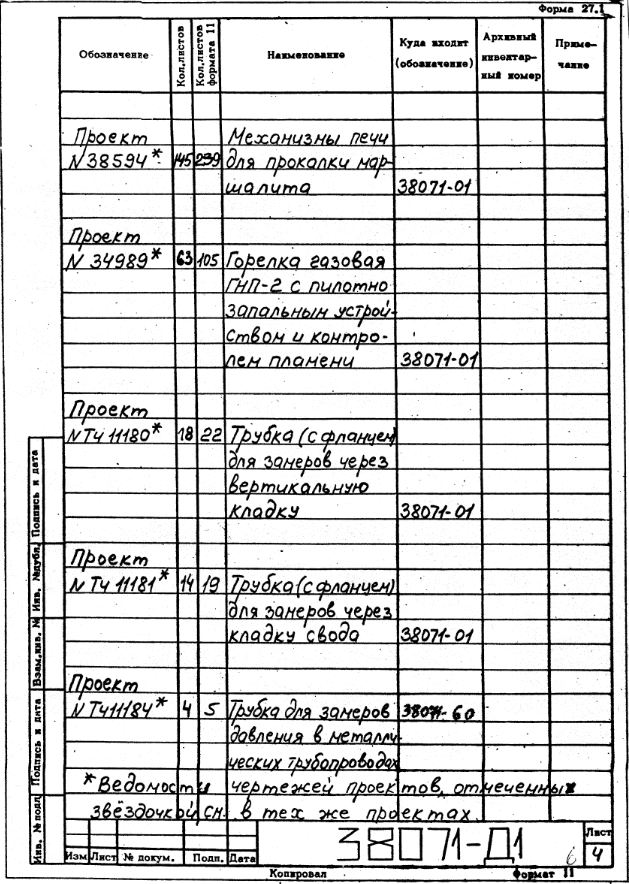 Форма 27.1
Обозначение Кол.листов Кол.листов формата 11 Наименование Куда входит (обозначение) Архивный инвентарный номер Примечание
Проект Механизмы печи
N 38594* 145 239 для прокалки мар-
шалита 38071-01
Проект
N 34989* 63 105 Горелка газовая
ГНП-2 с пилотно
запальным устрой-
ством и контро-
лем пламени 38071-01
Проект
N ТЧ 11180* 18 22 Трубка (с фланцем)
для замеров через
вертикальную
кладку 38071-01
Проект
N ТЧ 11181* 14 19 Трубка (с фланцем)
для замеров через
кладку свода 38071-01
Проект
N ТЧ11184* 4 5 Трубка для замеров 38071-60
давления в металли
ческих трубопроводах
*Ведомости чертежей проектов, отмеченных
звёздочкой, см. в тех же проектах.
Инв. № подл. Подпись и дата Взам.инв. № Инв. №дубл. Подпись и дата
38071-Д1
Лист
4
6
Изм Лист № докум. Подп. Дата
Копировал Формат 11